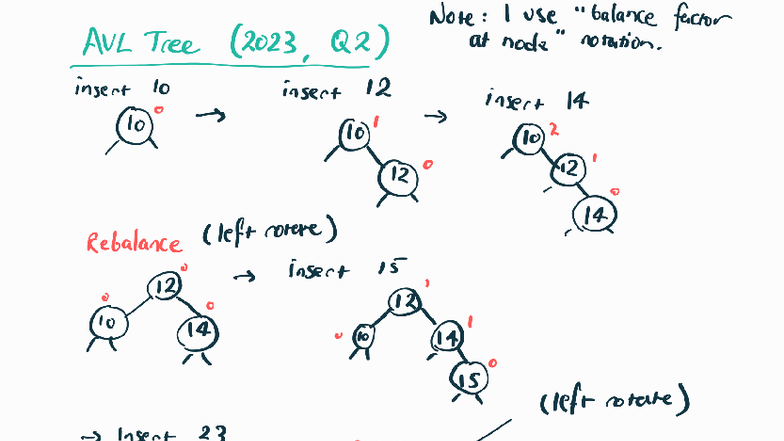 Note: I use "balance factor
at node" notation.
AVL Tree (2023, Q2)
insert 10
10 0
→
insert 12
10 1
12 0
→
insert 14
10 2
12 1
14 0
Rebalance (left rotate)
12 0
0 10
14 0
→ insert 15
12 1
0 10
14 1
15 0
(left rotate)
→ Insert 23